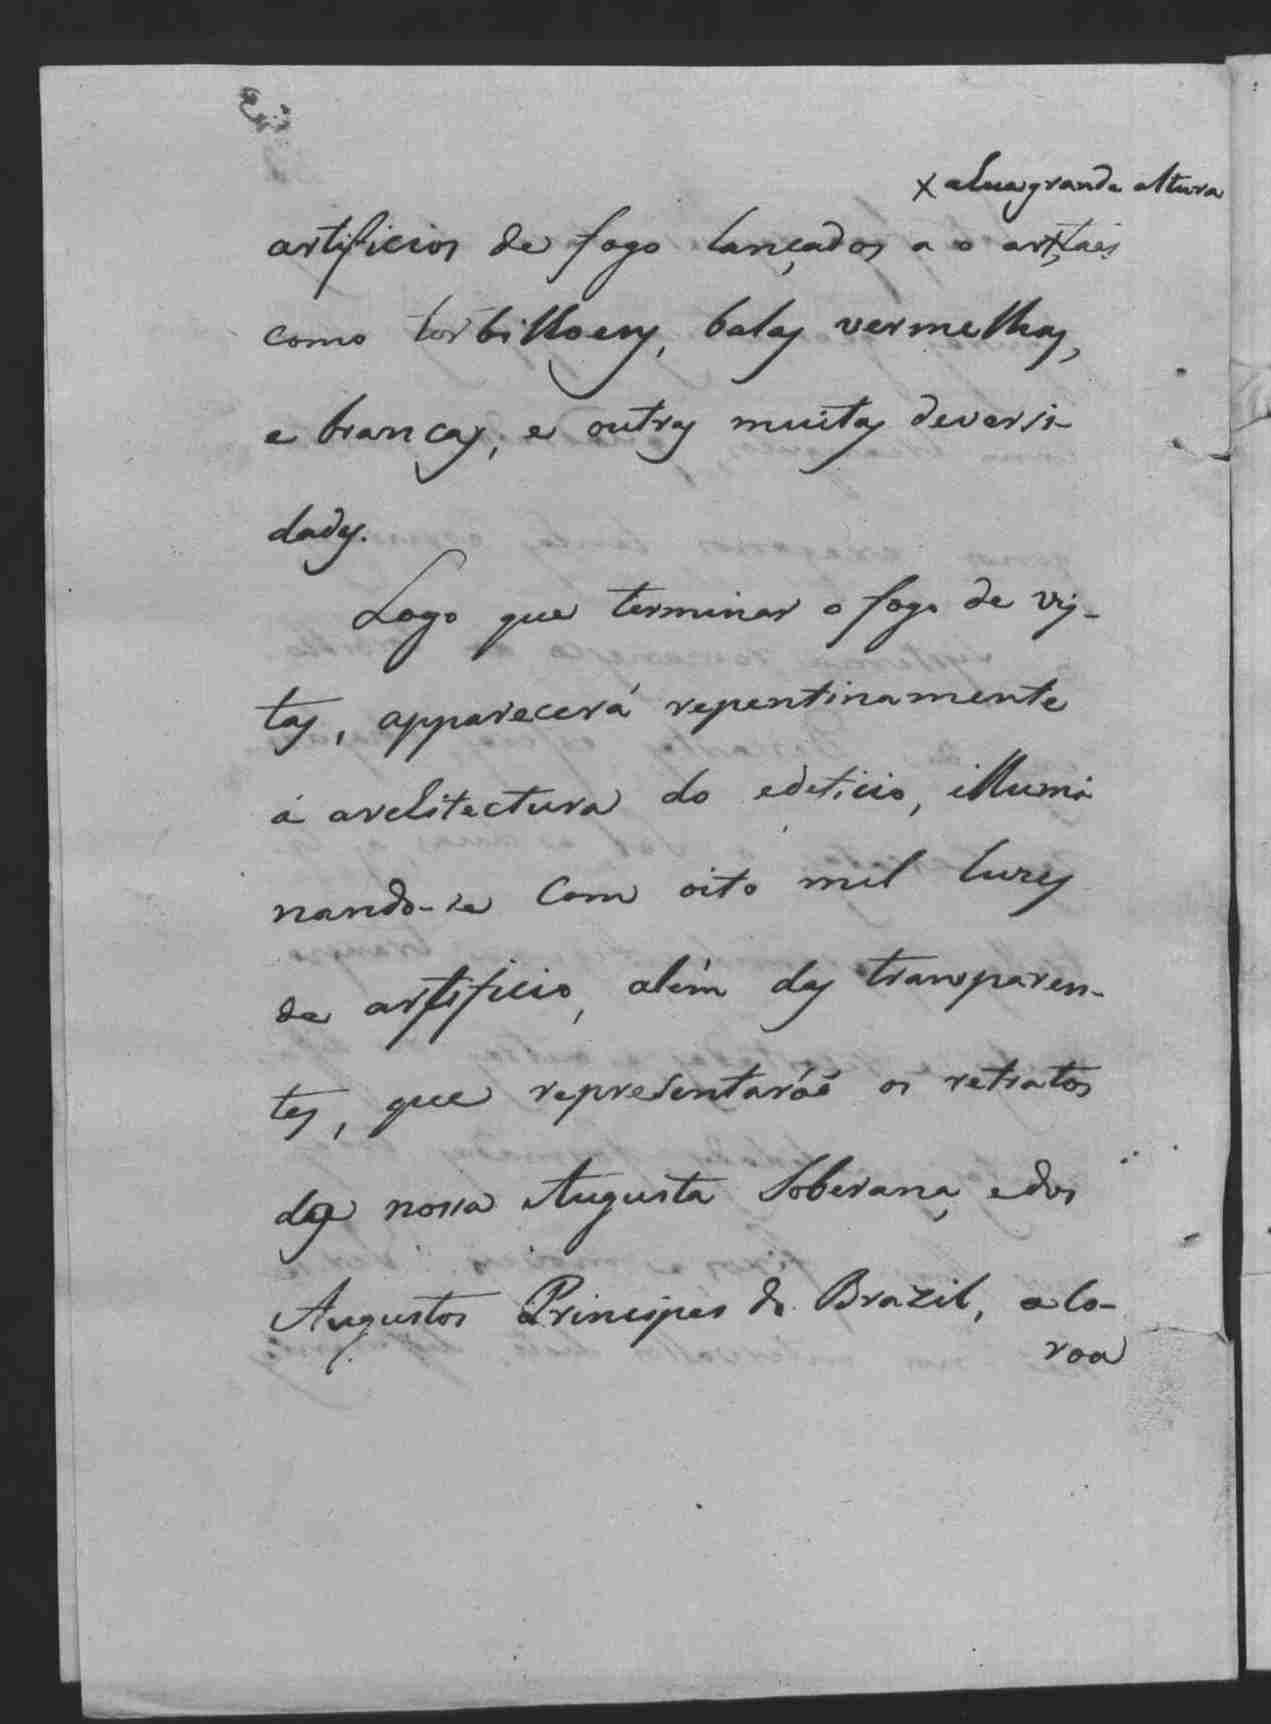 x a hua grande altura
artificios de fogo lançados a o ar x, taes
como torbilhoens, balas vermelhas,
e brancas, e outras muitas deversi-
dades.
Logo que terminar o fogo de vis-
tas, apparecerá repentinamente
a architectura do edeficio, illumi
nando-se com oito mil luzes
de artificio, além dos transparen-
tes, que representaráõ os retratos
da nossa Augusta Soberana, e dos
Augustos Principes do Brazil, a Co-
roa